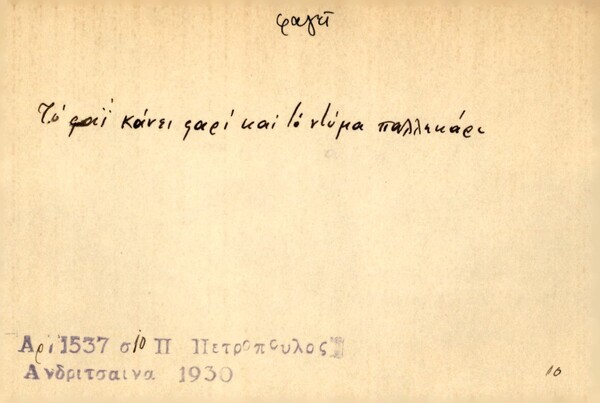 φαγεῖ
Τό φαΐ κάνει φαρί καί τό ντύμα παλλεκάρι
Αρι 1537 σ 10 Π Πετροπουλος
Ανδριτσαινα 1930
10